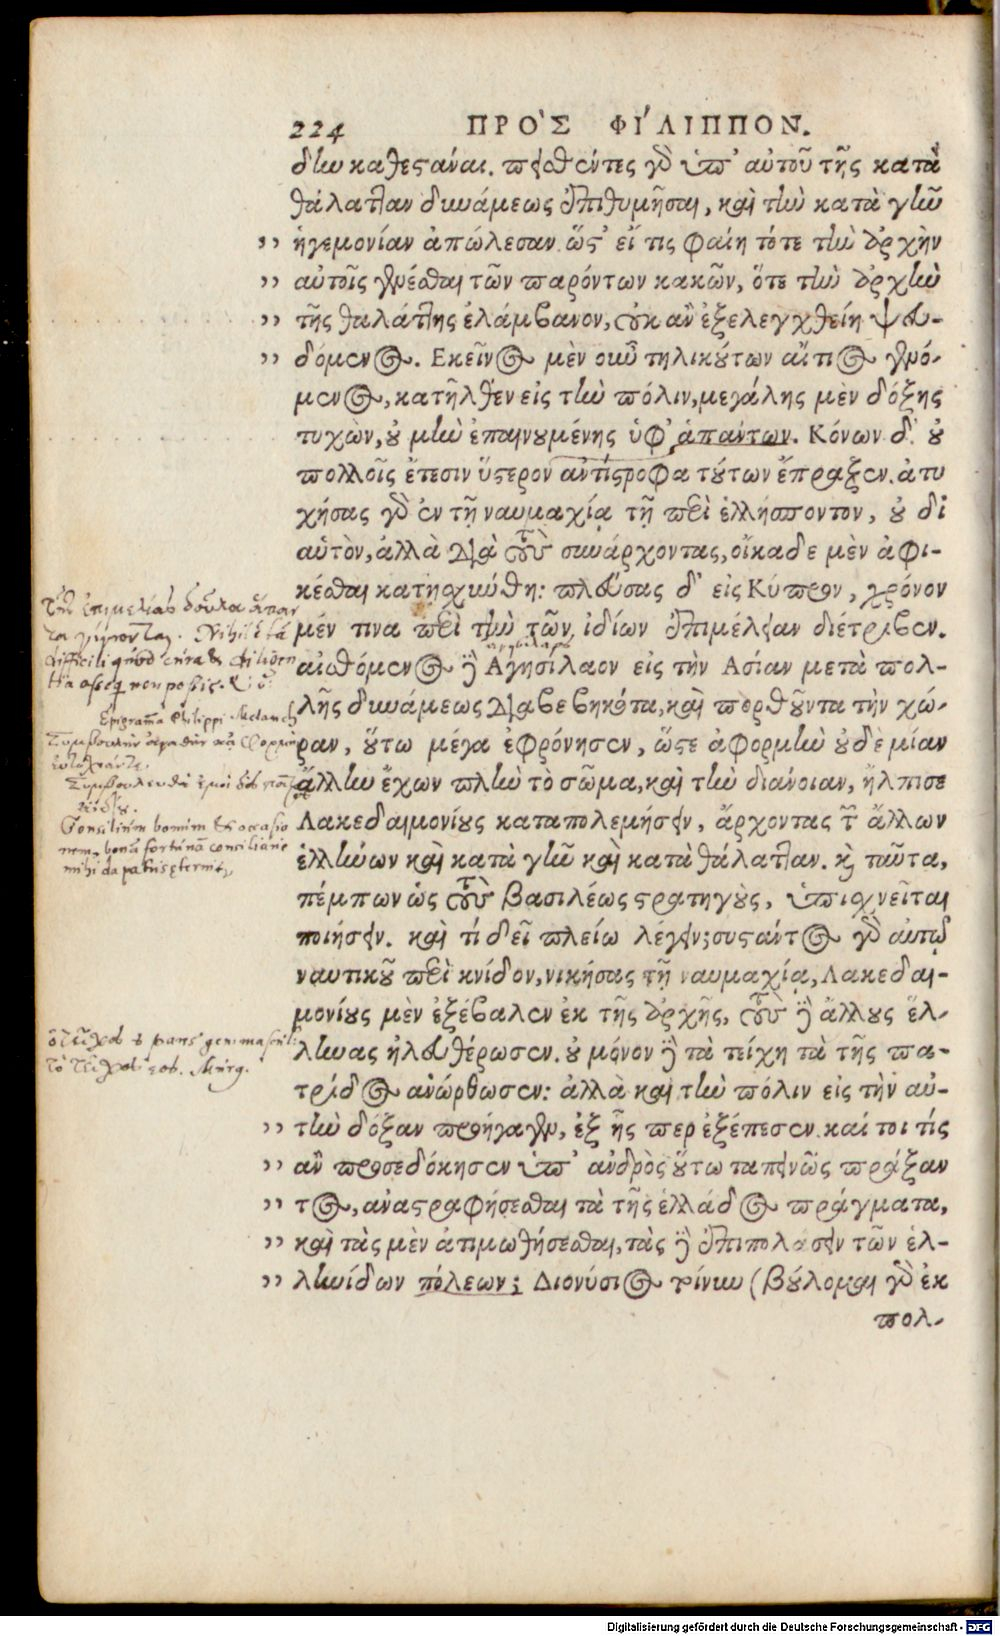 224 ΠΡΟ`Σ ΦΙ´ΛΙΠΠΟΝ.
δὴν καθεστάναι. πεισθέντες γὰρ ὑπ' αὐτοῦ τῆς κατὰ
θάλατταν δυνάμεως ἐπιθυμῆσαι, καὶ τὴν κατὰ γῆν
,, ἡγεμονίαν ἀπώλεσαν. ὥστ' εἴ τις φαίη τότε τὴν ἀρχὴν
,, αὐτοῖς γενέσθαι τῶν παρόντων κακῶν, ὅτε τὴν ἀρχὴν
,, τῆς θαλάττης ἐλάμβανον, οὐκ ἂν ἐξελεγχθείη ψευ-
,, δόμενος. Εκεῖνος μὲν οὖν τηλικούτων αἴτιος γενό-
μενος, κατῆλθεν εἰς τὴν πόλιν, μεγάλης μὲν δόξης
τυχὼν, οὐ μὴν ἐπαινουμένης ὑφ' ἁπάντων. Κόνων δ' οὐ
πολλοῖς ἔτεσιν ὕστερον ἀντίστροφα τούτων ἔπραξεν. ἀτυ
χήσας γὰρ ἐν τῇ ναυμαχίᾳ τῇ περὶ ἑλλήσποντον, οὐ δι
αὑτὸν, ἀλλὰ διὰ τοὺς συνάρχοντας, οἴκαδε μὲν ἀφι-
κέσθαι κατῃσχύνθη: πλεύσας δ' εἰς Κύπρον, χρόνον
μέν τινα περὶ τὴν τῶν ἰδίων ἐπιμέλειαν διέτριβεν.
αἰσθόμενος δὲ Αγησίλαον εἰς τὴν Ασίαν μετὰ πολ-
λῆς δυνάμεως διαβεβηκότα, καὶ πορθοῦντα τὴν χώ-
ραν, οὕτω μέγα ἐφρόνησεν, ὥστε ἀφορμὴν οὐδεμίαν
ἄλλην ἔχων πλὴν τὸ σῶμα, καὶ τὴν διάνοιαν, ἤλπισε
Λακεδαιμονίους καταπολεμήσειν, ἄρχοντας τῶν ἄλλων
ἑλλήνων καὶ κατὰ γῆν καὶ κατὰ θάλατταν. καὶ ταῦτα,
πέμπων ὡς τοὺς βασιλέως στρατηγοὺς, ὑπισχνεῖται
ποιήσειν. καὶ τί δεῖ πλείω λέγειν; συστάντος γὰρ αὐτῷ
ναυτικοῦ περὶ κνίδον, νικήσας τῇ ναυμαχίᾳ, Λακεδαι-
μονίους μὲν ἐξέβαλεν ἐκ τῆς ἀρχῆς, τοὺς δὲ ἄλλους ἕλ-
ληνας ἠλευθέρωσεν. οὐ μόνον δὲ τὰ τείχη τὰ τῆς πα-
τρίδος ἀνώρθωσεν: ἀλλὰ καὶ τὴν πόλιν εἰς τὴν αὐ-
,, τὴν δόξαν προήγαγεν, ἐξ ἧς περ ἐξέπεσεν. καί τοι τίς
,, ἂν προσεδόκησεν ὑπ' ἀνδρὸς οὕτω ταπεινῶς πράξαν
,, τος, ἀναστραφήσεσθαι τὰ τῆς ἑλλάδος πράγματα,
,, καὶ τὰς μὲν ἀτιμωθήσεσθαι, τὰς δὲ ἐπιπολάσειν τῶν ἑλ-
,, ληνίδων πόλεων; Διονύσιος τοίνυν (βούλομαι γὰρ ἐκ
πολ-
Nihil ē tā
difficili quod cura & diligen
tia asseq non possis.
Epigrāma Philippi Melanch
Consilium homini & occasio
nem, bonā fortunā consiliūque
mihi da patris æterni
Digitalisierung gefördert durch die Deutsche Forschungsgemeinschaft - DFG